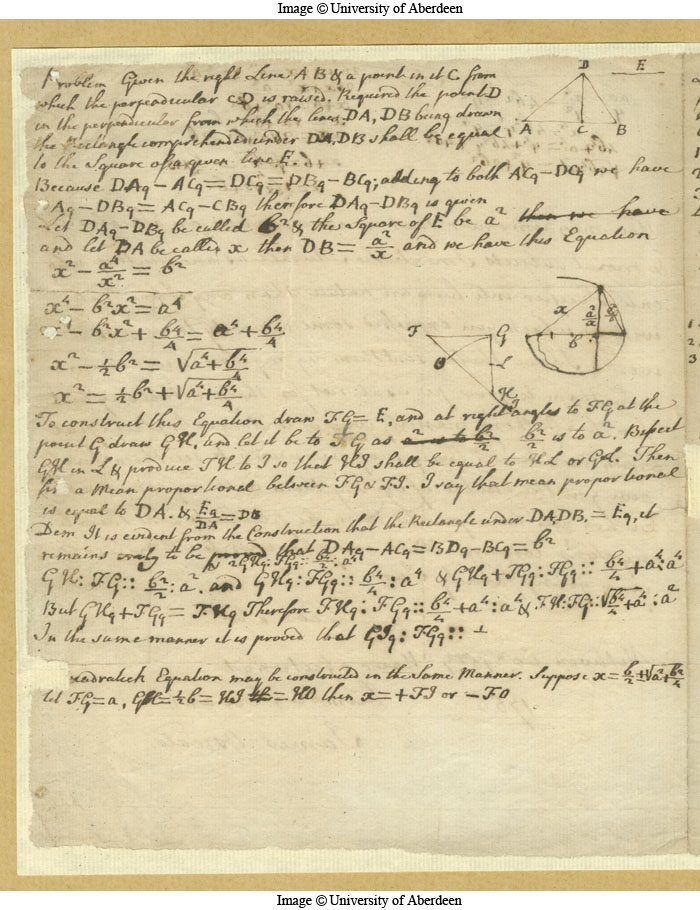 Image © University of Aberdeen
Problem Given the right Line A B & a point in it C. from
which the perpendicular CD is raised. Required the point D
in the perpendicular from which the lines DA, DB being drawn
the Rectangle comprehended under DA, DB shall be equal
to the Square of a given line E.
D E
A C B
Because DAq - ACq = DCq = DBq - BCq; adding to both ACq - DCq we have
Aq - DBq = ACq - CBq therefore DAq - DBq is given
Let DAq - DBq be called b² & the Square of E be a² then we have
and let DA be called x then DB = a²/x and we have this Equation
x² - a⁴/x² = b²
x⁴ - b²x² = a⁴
- b²x² + b4/4 = a⁴ + b4/4
x² - ½b² = √a⁴ + b4/4
x² = ½b² + √a⁴ + b4/4
x a²/x b
F G
O L
H I
To construct this Equation draw FG = E, and at right angles to FG at the
point G draw GH, and let it be to FG as a² is to b²/2 b²/2 is to a². Bisect
GH in L & produce FH to I so that HI shall be equal to HL or GL. Then
a Mean proportional between FG & FI. I say that mean proportional
is equal to DA. & Eq/DA = DB
Dem It is evident from the Construction that the Rectangle under DA, DB. = Eq, it
remains only to be proved that DAq - ACq = BDq - BCq = b²
GH: FG :: b²/2 : a². and GHq: FGq :: b4/4 : a⁴ & GHq + FGq: FGq :: b4/4 + a⁴: a⁴
But GHq + FGq = FHq Therefore FHq: FGq :: b4/4 + a⁴: a⁴ & FH: FG :: √b4/4 + a⁴ : a²
In the same manner it is proved that GIq: FGq ::
uadratick Equation may be constructed in the Same Manner. Suppose x = b/2 + √a² + b²/4
let FG = a, GH = ½b = HI = HO then x = + FI or - FO
Image © University of Aberdeen